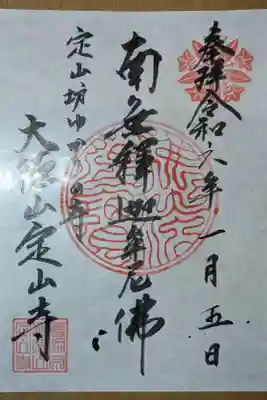 奉拝令和六年一月五日
南無釋迦牟尼佛
定山坊ゆかりの寺
大徳山定山寺